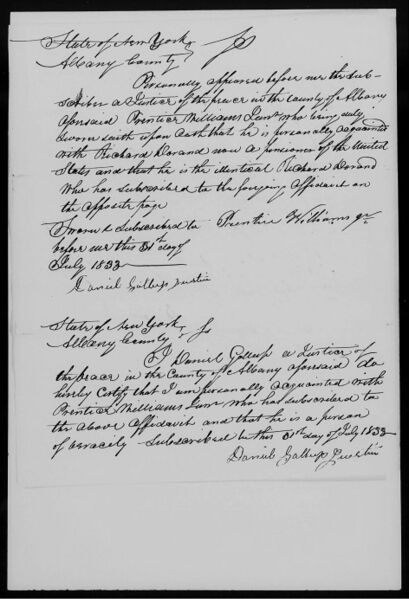 State of New York
Albany County } Ss
Personally appeared before me the sub-
scriber a Justice of the peace in the County of Albany
aforesaid Prentice Williams Junr who being duly
sworn saith upon oath that he is personally acquainted
with Richard Dorand now a pensioner of the United
States and that he is the identical Richard Dorand
who has subscribed to the foregoing affidavit on
the opposite page
Sworn & subscribed to Prentice Williams Jr
before me this 31st day of
July 1833
Daniel Gallup Justice
State of New York
Albany County } Ss
I Daniel Gallup a Justice of
the peace in the County of Albany aforesaid do
hereby Certify that I am personally acquainted with
Prentice Williams Junr who has subscribed to
the above affidavit and that he is a person
of veracity Subscribed to this 31st day of July 1833
Daniel Gallup Justice